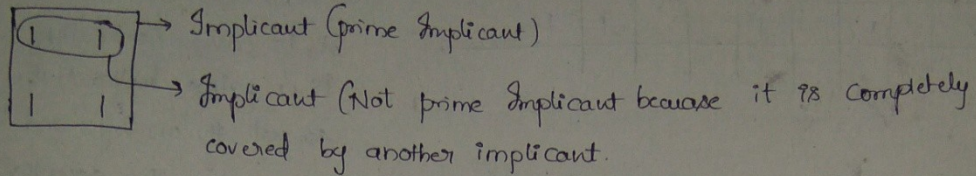 1 1 → Implicant (prime Implicant)
1 1 → Implicant (Not prime Implicant becuase it is completely
covered by another implicant.